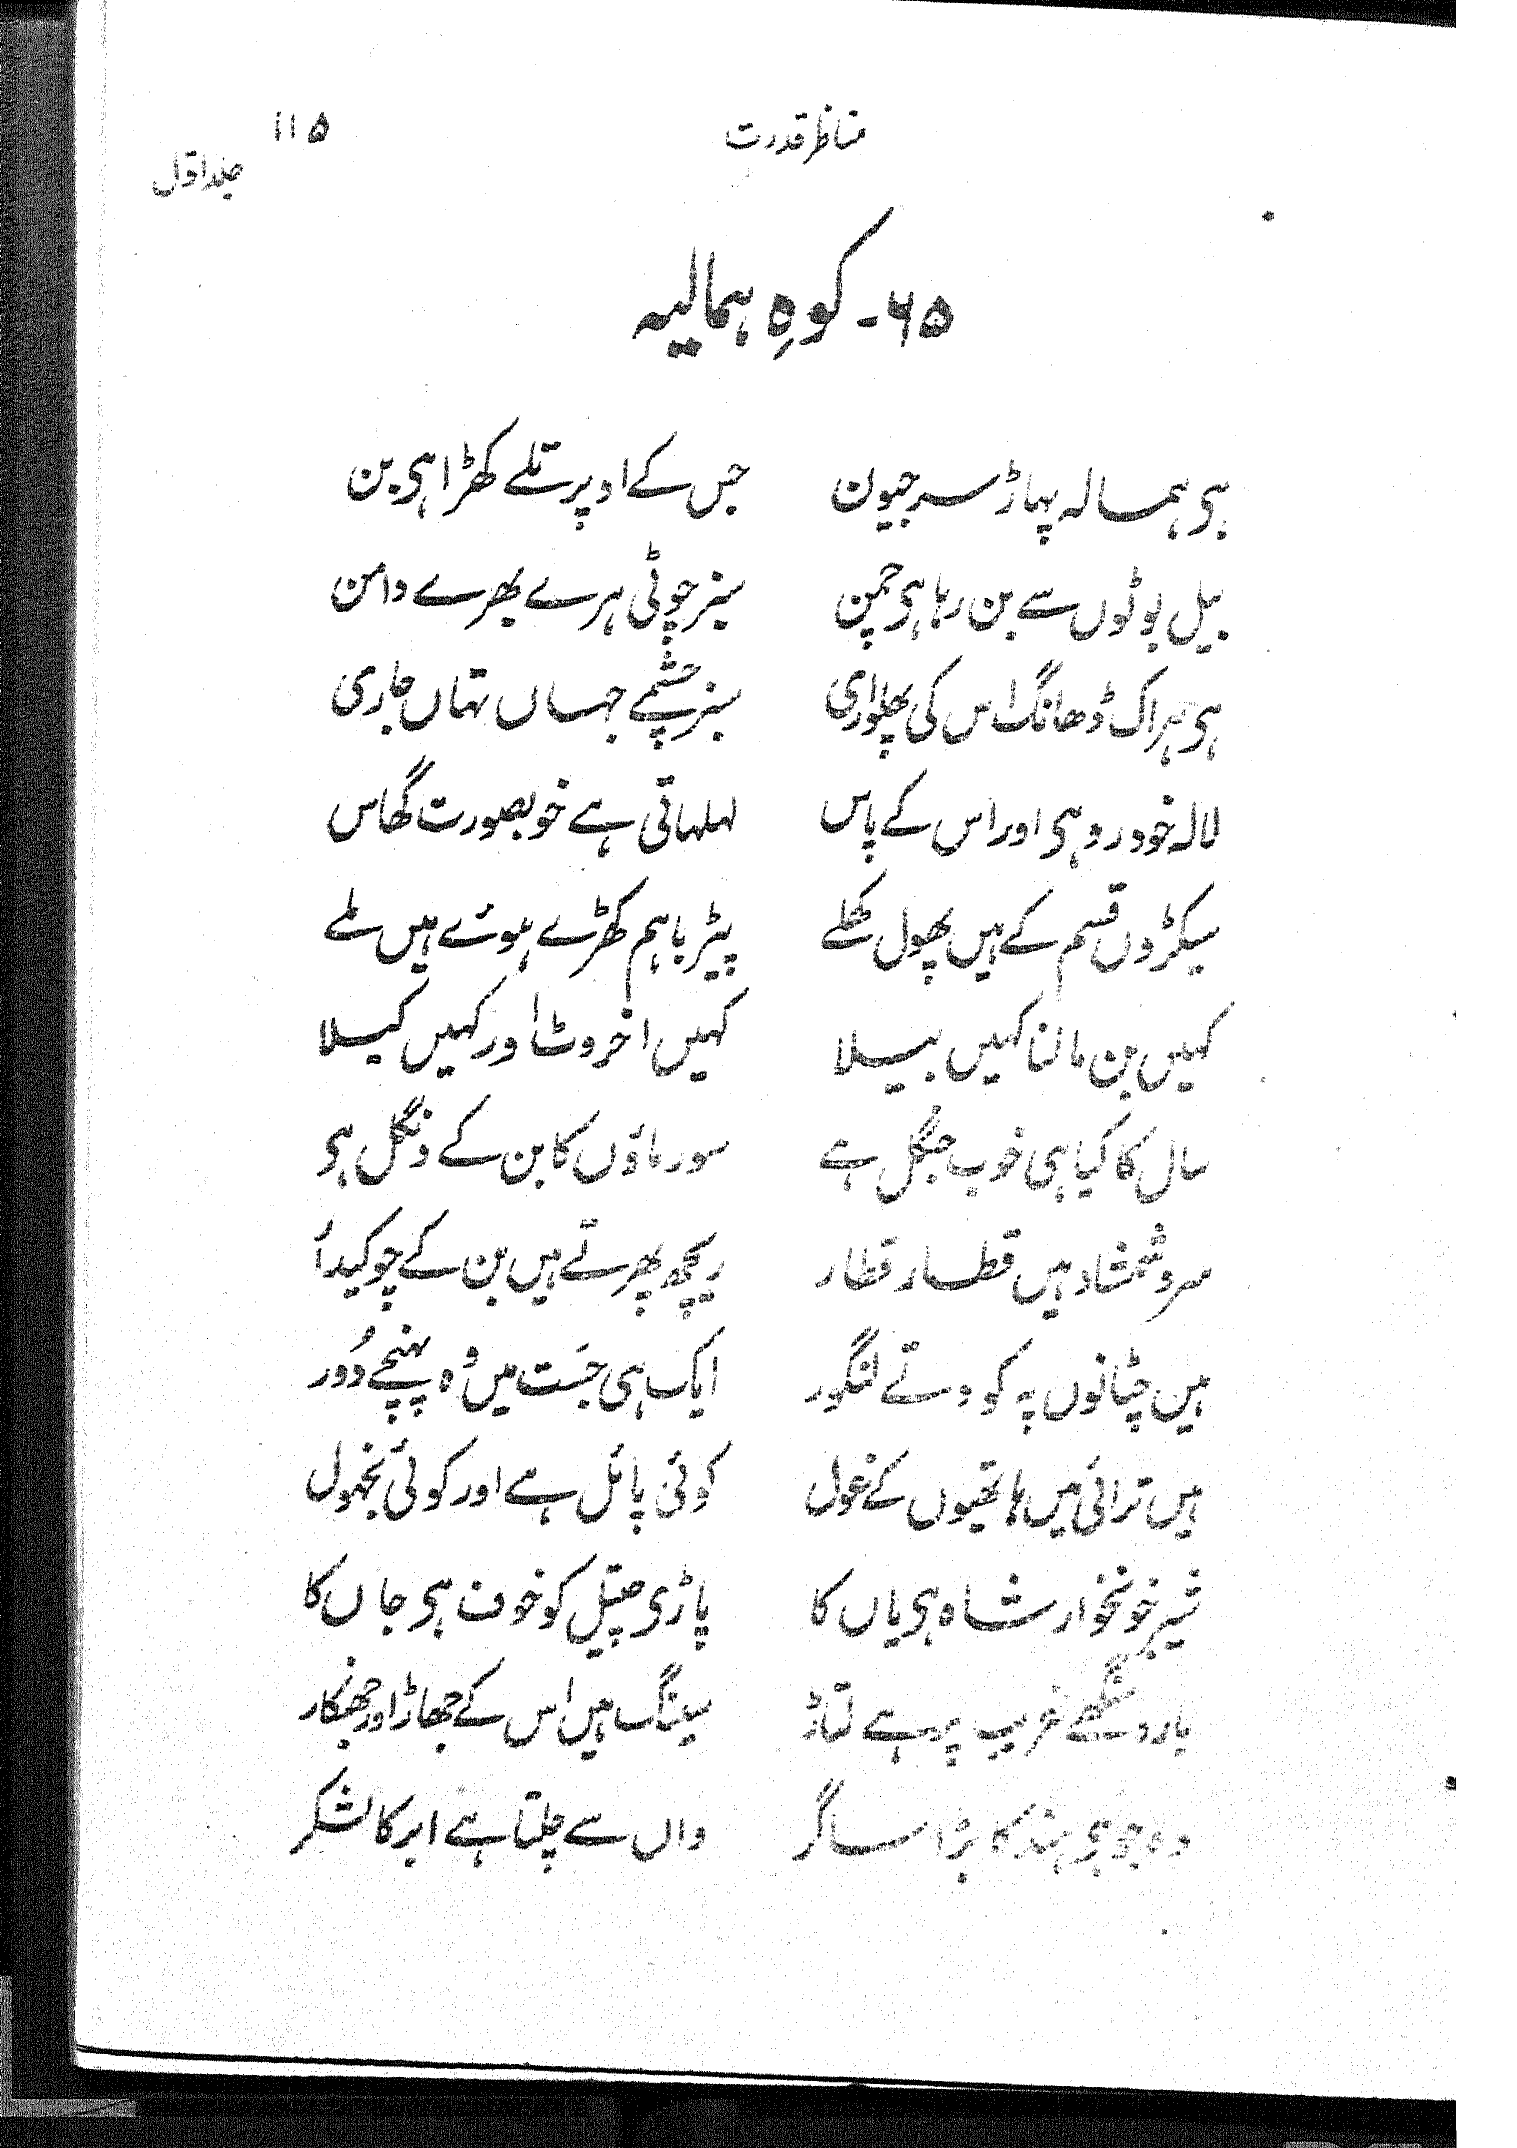 مناظر قدرت
۱۱۵
جلد اوّل
۶۵- کوہِ ہمالیہ
ہی ہمالہ پہاڑ سر جیون جس کے اوپر تلے کھڑا ہی بن
بیل بوٹوں سے بن رہا ہی چمن سبز چوٹی ہرے بھرے دامن
ہی ہراک ڈھانگ اس کی پھلواری سبز چشمے جہاں تہاں جاری
لالہ خودرو ہی اور اس کے پاس لہلہاتی ہے خوبصورت گھاس
سیکڑوں قسم کے ہیں پھول کھلے پیڑ باہم کھڑے ہوئے ہیں ملے
کہیں بن مالتا کہیں بیلا کہیں اخروٹ اور کہیں کیلا
سال کا کیا ہی خوب جنگل ہے سورماؤں کا بن کے دنگل ہی
سرو شمشاد ہیں قطار قطار ریچھ پھرتے ہیں بن کے چوکیدار
ہیں چٹانوں پہ کودتے لنگور ایک ہی جَست میں وُہ پہنچے دُور
ہیں ترائی میں ہاتھیوں کے غول کوئی پائل ہے اور کوئی نجھول
شیر خونخوار شاہ ہی یاں کا پاڑی چیتل کو خوف ہی جاں کا
بارہ سنگھے غریب پر ہے لتاڑ سینگ ہیں اس کے جھاڑ اور جھنکار
وہ جو ہی ہند کا بڑا ساگر واں سے چلتا ہے ابر کا لشکر